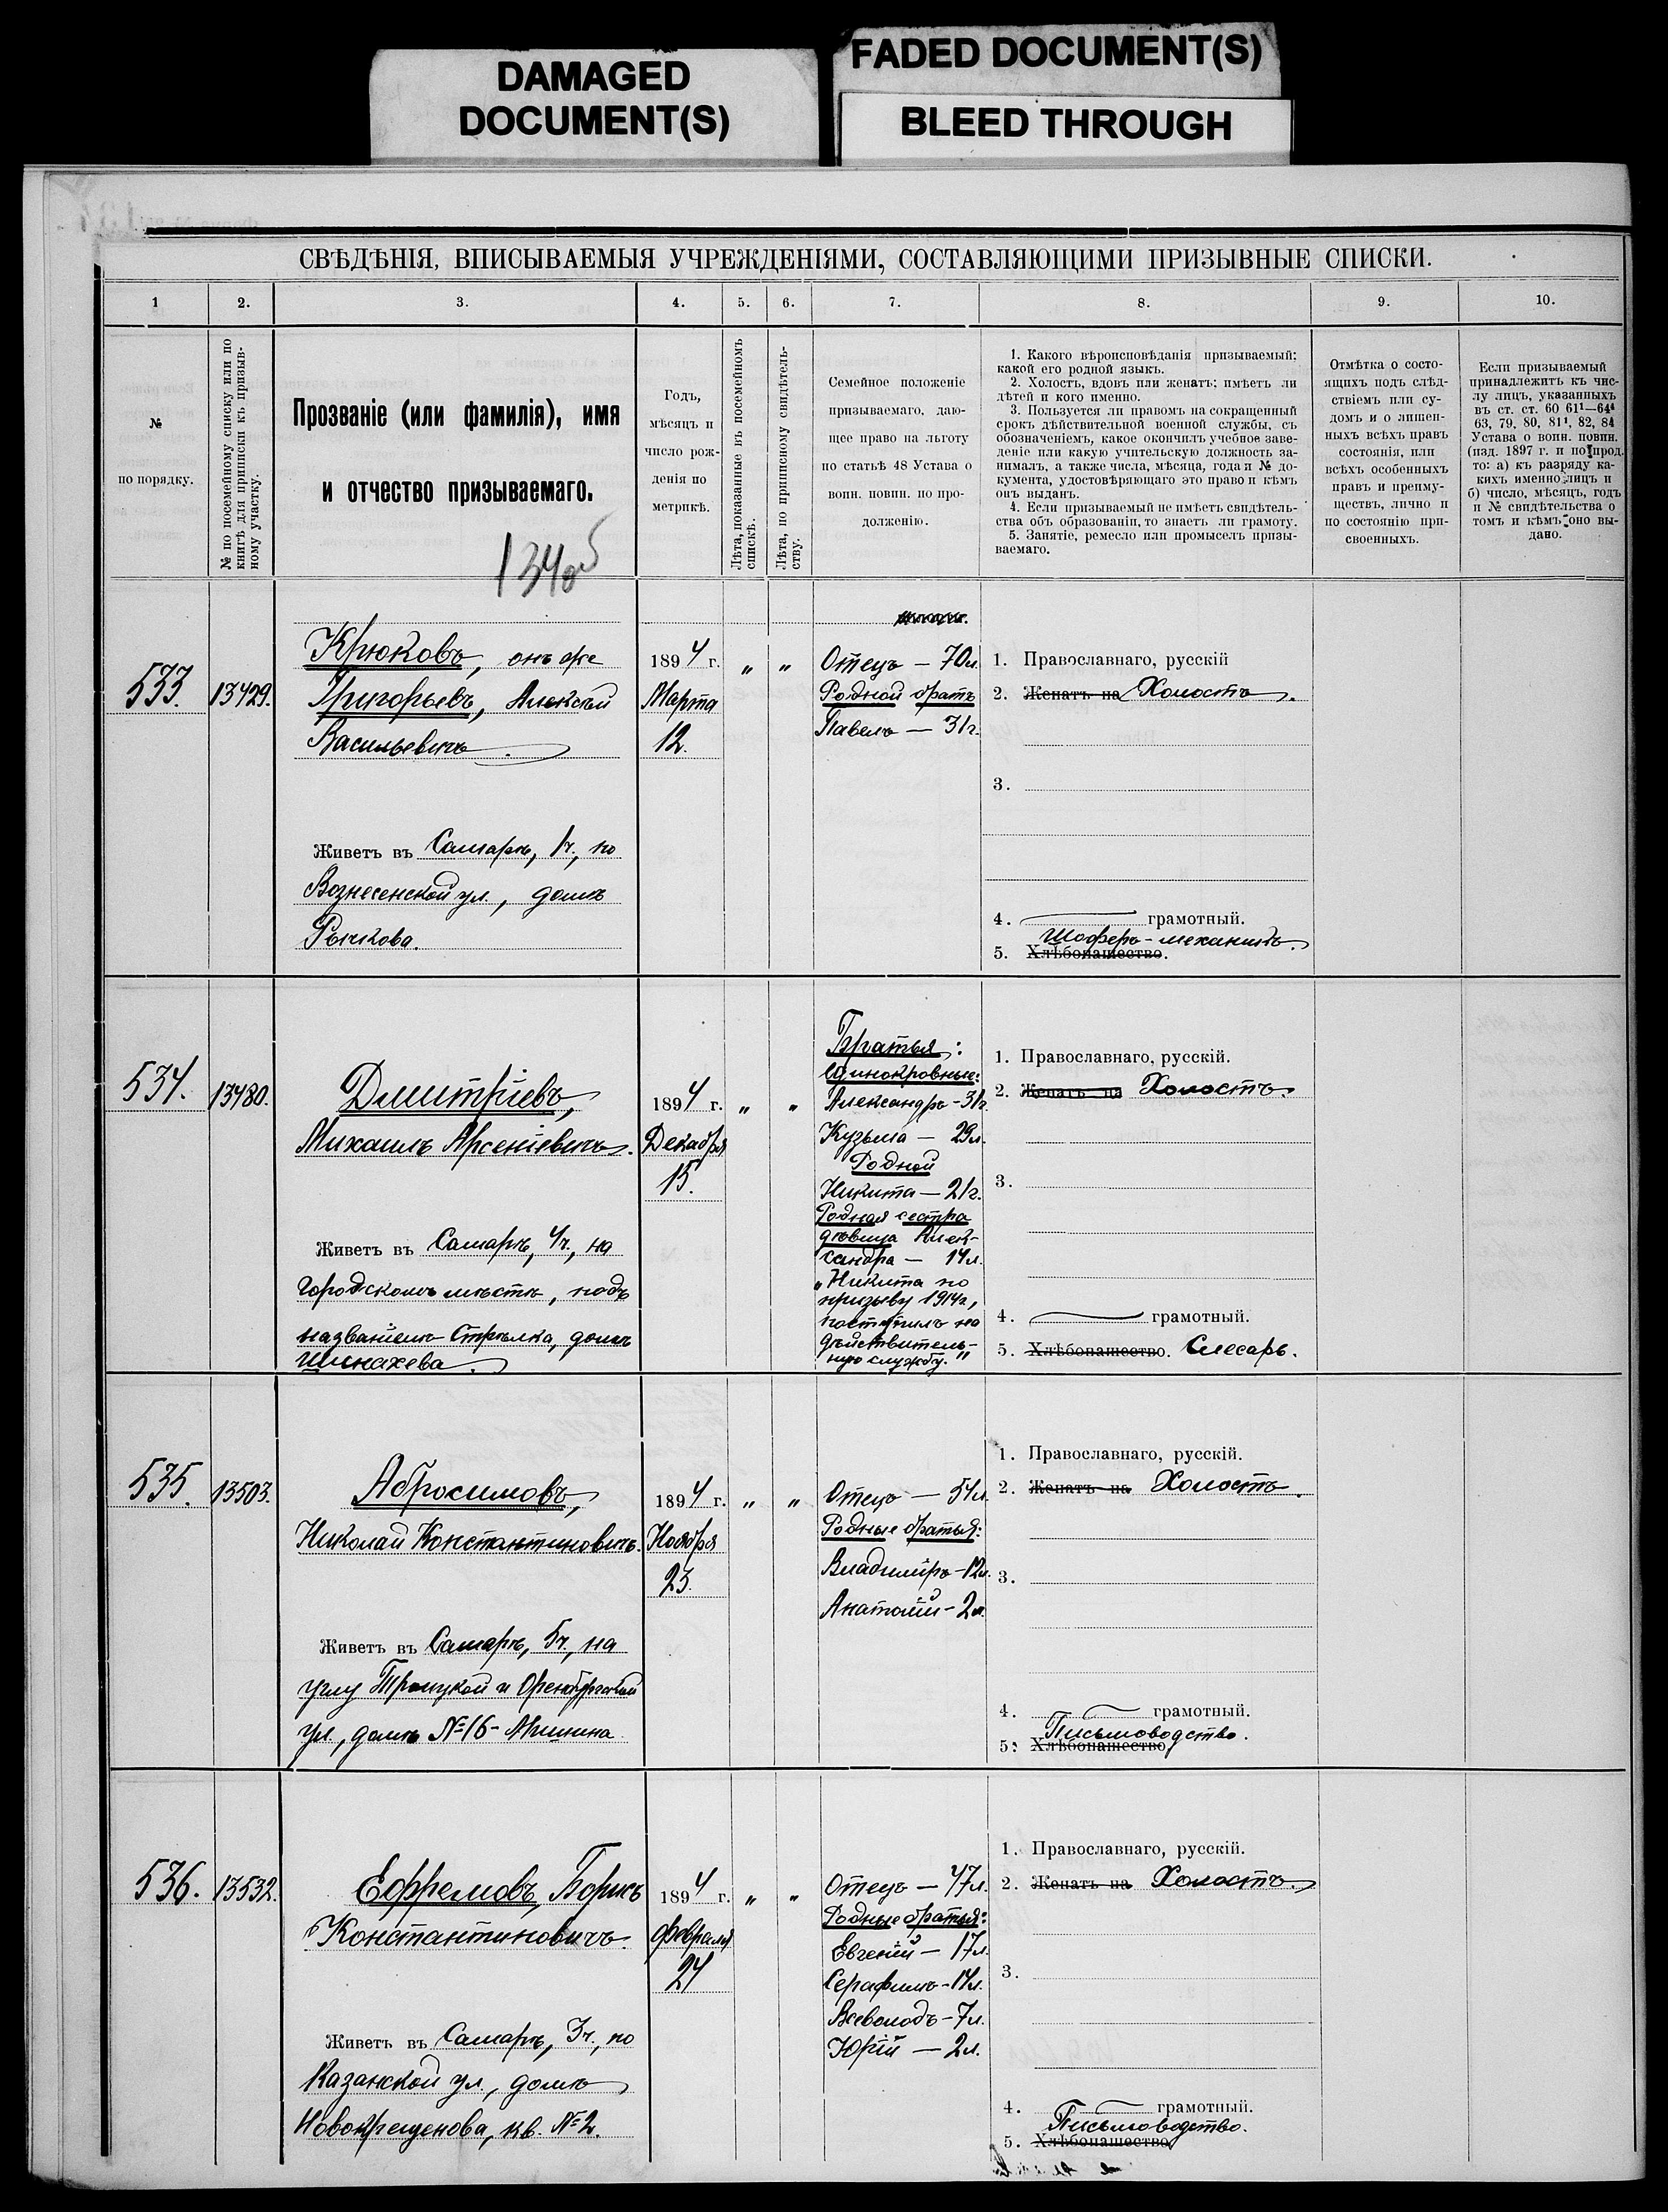 DAMAGED
DOCUMENT(S)
FADED DOCUMENT(S)
BLEED THROUGH
СВѢДѢНІЯ, ВПИСЫВАЕМЫЯ УЧРЕЖДЕНІЯМИ, СОСТАВЛЯЮЩИМИ ПРИЗЫВНЫЕ СПИСКИ.
1 2. 3. 4. 5. 6. 7. 8. 9. 10.
№
по порядку.
№ по посемейному списку или по
книгѣ для приписки къ призыв-
ному участку.
Прозваніе (или фамилія), имя
и отчество призываемаго.
134об
Годъ,
мѣсяцъ и
число рож-
денія по
метрикѣ.
Лѣта, показанныя въ посемейномъ
спискѣ.
Лѣта, по приписному свидѣтель-
ству.
Семейное положеніе
призываемаго, даю-
щее право на льготу
по статьѣ 48 Устава о
воин. повин. по про-
долженію.
1. Какого вѣроисповѣданія призываемый;
какой его родной языкъ.
2. Холостъ, вдовъ или женатъ; имѣетъ ли
дѣтей и кого именно.
3. Пользуется ли правомъ на сокращенный
срокъ дѣйствительной военной службы, съ
обозначеніемъ, какое окончилъ учебное заве-
деніе или какую учительскую должность за-
нималъ, а также числа, мѣсяца, года и № до-
кумента, удостовѣряющаго это право и кѣмъ
онъ выданъ.
4. Если призываемый не имѣетъ свидѣтель-
ства объ образованіи, то знаетъ ли грамоту.
5. Занятіе, ремесло или промыселъ призы-
ваемаго.
Отмѣтка о состо-
ящихъ подъ слѣд-
ствіемъ или су-
домъ и о лишен-
ныхъ всѣхъ правъ
состоянія, или
всѣхъ особенныхъ
правъ и преиму-
ществъ, лично и
по состоянію при-
своенныхъ.
Если призываемый
принадлежитъ къ чис-
лу лицъ, указанныхъ
въ ст. ст. 60 61¹—64⁴
63, 79, 80, 81¹, 82, 84
Устава о воин. повин.
(изд. 1897 г. и по прод.
то: а) къ разряду ка-
кихъ именно лицъ и
б) число, мѣсяцъ, годъ
и № свидѣтельства о
томъ и кѣмъ оно вы-
дано.
533. 13429.
Крюковъ, онъ же
Григорьевъ, Алексѣй
Васильевичъ.
Живетъ въ Самарѣ, 1ч., по
Вознесенской ул., домъ
Рычкова.
1894 г.
Марта
12.
" "
Отецъ — 70л.
Родной братъ
Павелъ — 31г.
1. Православнаго, русскій
2. Женатъ на Холостъ.
3.
4. грамотный.
Шоферъ-механикъ.
5. Хлѣбопашество.
534. 13480.
Дмитріевъ,
Михаилъ Арсеніевичъ.
Живетъ въ Самарѣ, 4ч., на
Городскомъ мѣстѣ, подъ
названіемъ Стрѣлка, домъ
1894 г.
Декабря
15.
" "
Братья:
единокровные:
Александръ - 31г.
Кузьма — 29л.
Родной
Никита — 21г.
Родная сестра
дѣвица Алек-
сандра — 14л.
„Никита по
призыву 1914г.,
поступилъ на
дѣйствитель-
ную службу."
1. Православнаго, русскій.
2. Женатъ на Холостъ.
3.
4. грамотный.
5. Хлѣбопашество. Слесарь.
535. 13503.
Абросимовъ,
Николай Константиновичъ.
Живетъ въ Самарѣ, 5ч., на
углу Троицкой и Оренбургской
ул., домъ №16- Мишина.
1894 г.
Ноября
23.
" "
Отецъ — 54л.
Родные братья:
Владиміръ - 12л.
Анатолій - 2л.
1. Православнаго, русскій.
2. Женатъ на Холостъ.
3.
4. грамотный.
Письмоводство.
5. Хлѣбопашество
536. 13532.
Ефремовъ, Борисъ
Константиновичъ.
Живетъ въ Самарѣ, 3ч., по
Казанской ул., домъ
Новокрещенова, кв. №2.
1894 г.
Февраля
24
" "
Отецъ — 47л.
Родные братья:
Евгеній — 17л.
Серафимъ - 14л.
Всеволодъ - 7л.
Юрій — 2л.
1. Православнаго, русскій.
2. Женатъ на Холостъ.
3.
4. грамотный.
Письмоводство.
5. Хлѣбопашество